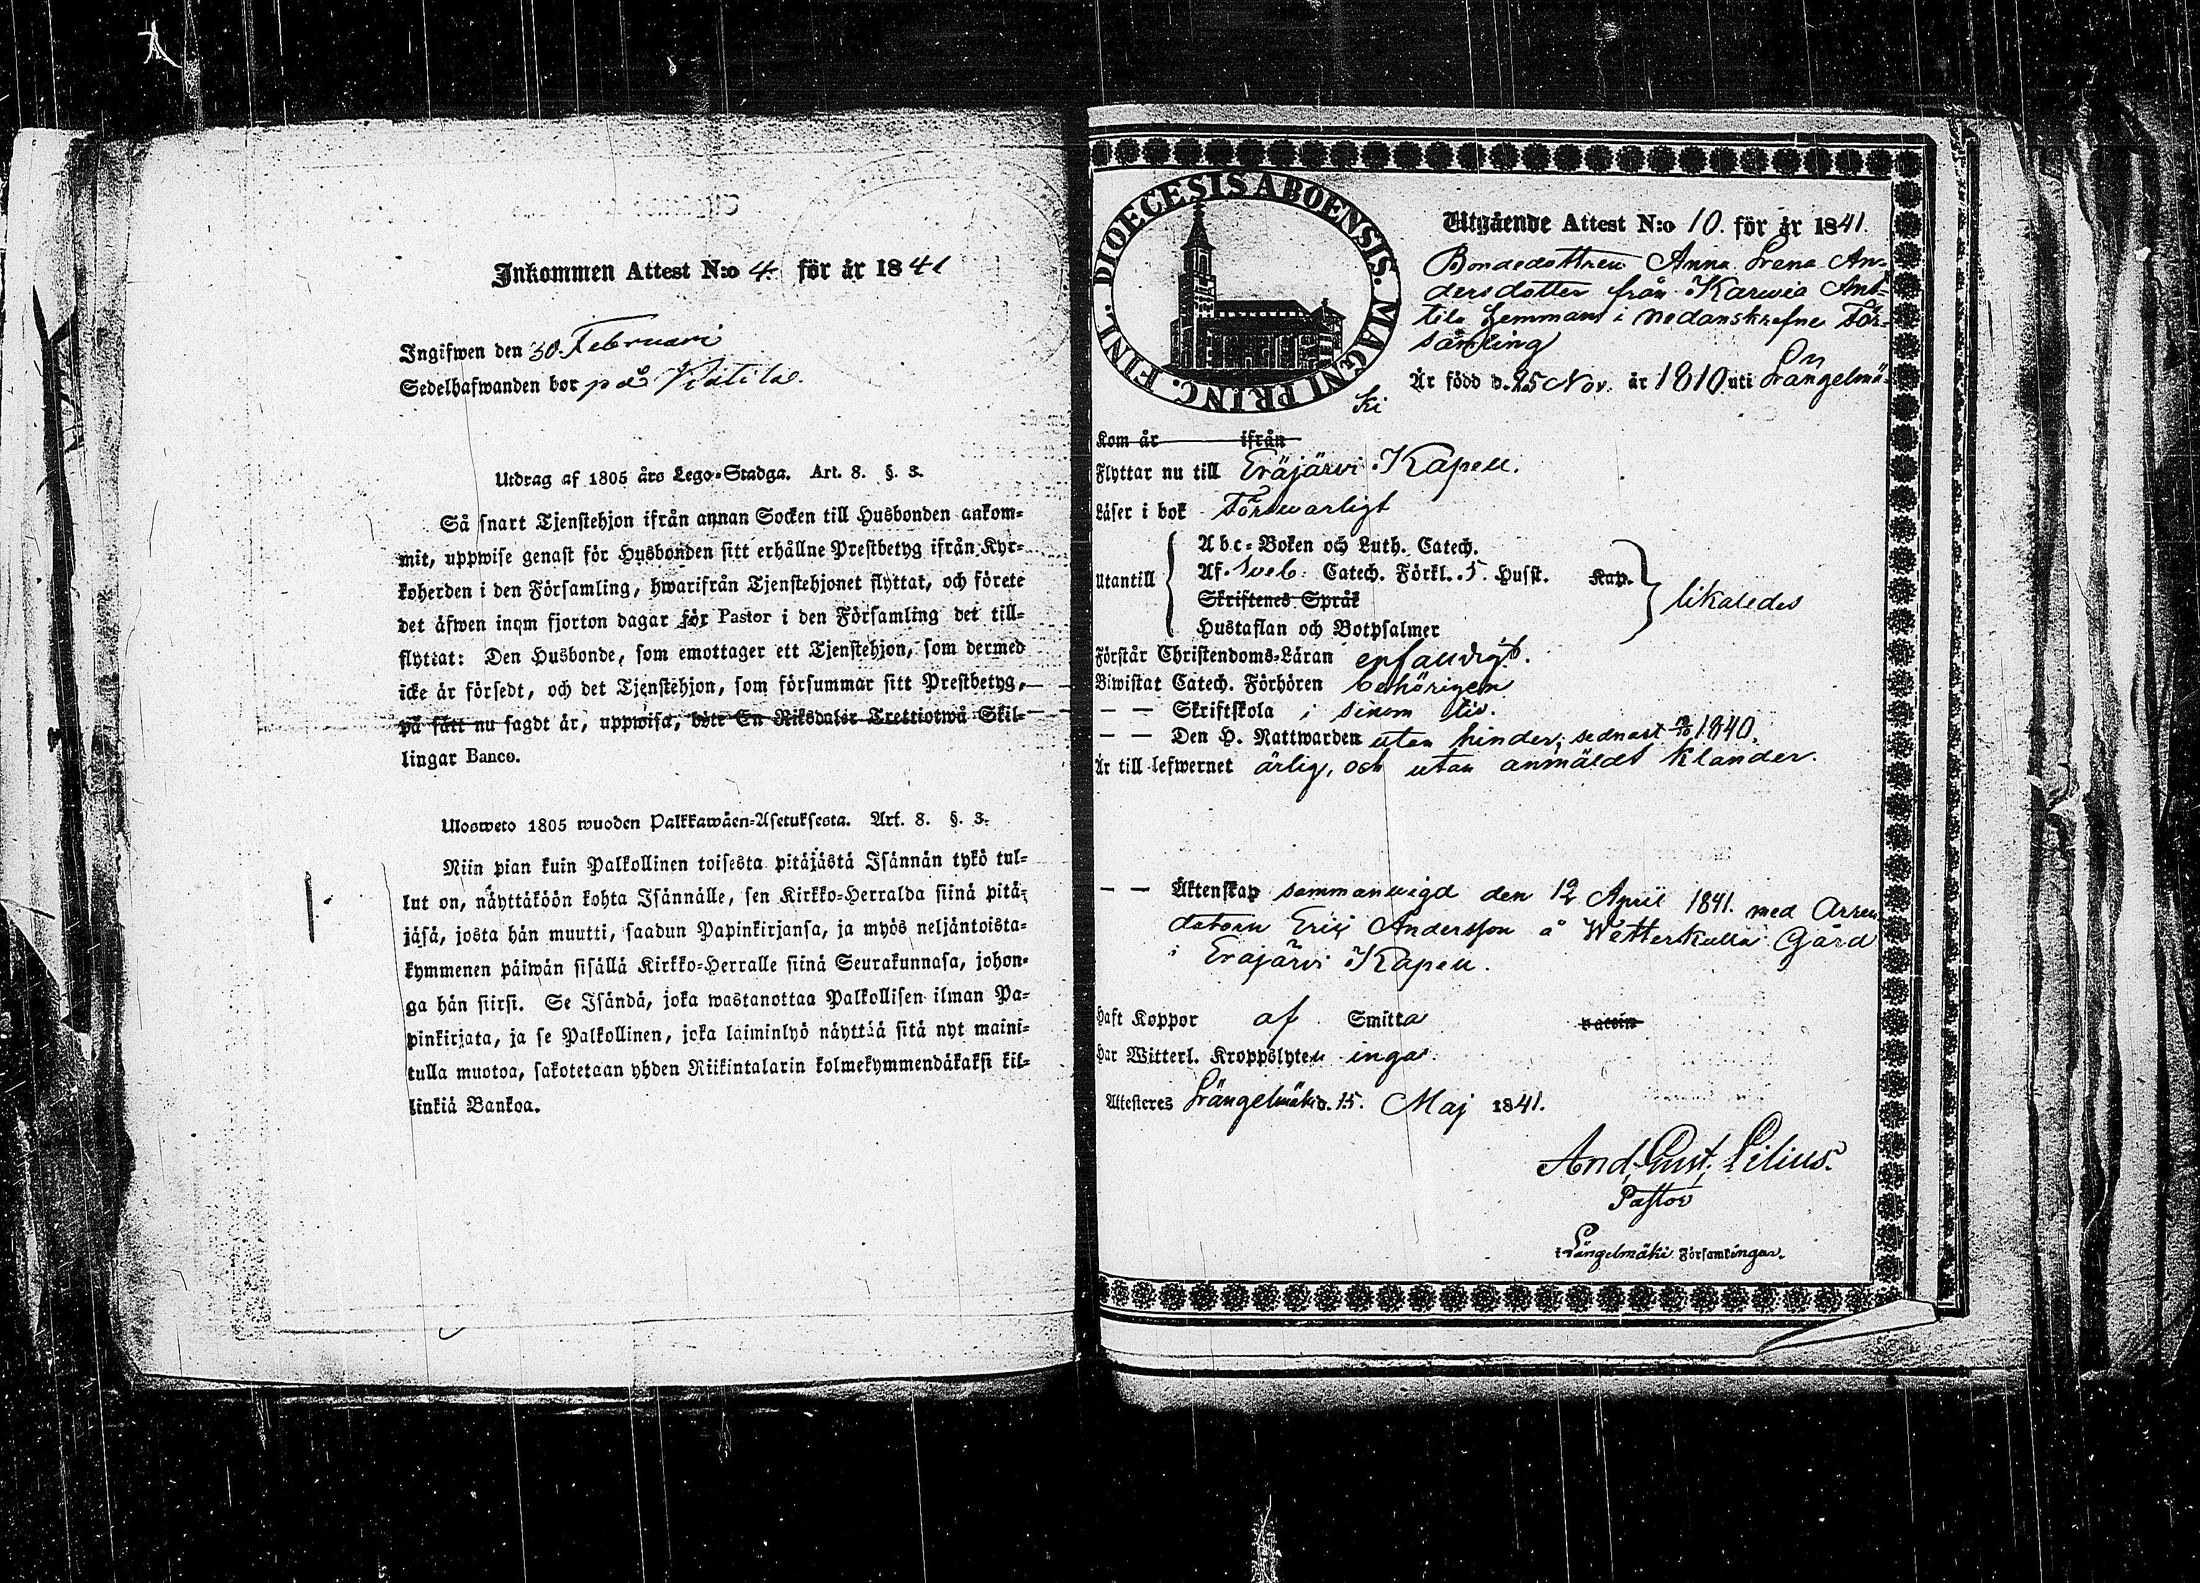 Inkommen Attest N:o 4. för år 1841
Ingifwen den 30. Februari
Sedelhafwanden bor på Rätila.
Utdrag af 1805 års Lego-Stadga. Art. 8. §. 3.
Så snart Tjenstehjon ifrån annan Socken till Husbonden ankom-
mit, uppwise genast för Husbonden sitt erhållne Prestbetyg ifrån Kyr-
koherden i den Församling, hwarifrån Tjenstehjonet flyttat, och förete
det äfwen inom fjorton dagar för Pastor i den Församling det till-
flyttat: Den Husbonde, som emottager ett Tjenstehjon, som dermed
icke är försedt, och det Tjenstehjon, som försummar sitt Prestbetyg,
på sätt nu sagdt är, uppwisa, böte En Riksdaler Trettiotwå Skil-
lingar Banco.
Ulosweto 1805 wuoden Palkkawäen-Asetuksesta. Art. 8. §. 3.
Niin pian kuin Palkollinen toisesta pitäjästä Isännän tykö tul-
lut on, näyttäköön kohta Isännälle, sen Kirkko-Herralda siinä pitä-
jäsä, josta hän muutti, saadun Papinkirjansa, ja myös neljäntoista-
kymmenen päiwän sisällä Kirkko-Herralle siinä Seurakunnasa, johon-
ga hän siirsi. Se Isändä, joka wastanottaa Palkollisen ilman Pa-
pinkirjata, ja se Palkollinen, joka laiminlyö näyttää sitä nyt maini-
tulla muotoa, sakotetaan yhden Riikintalarin kolmekymmendäkaksi kil-
linkiä Bankoa.
DIOECESIS ABOENSIS. MAGNI PRINC. FINL.
Utgående Attest N:o 10. för år 1841.
Bondedottren Anna Lena An-
dersdotter från Karwia Ant-
tila hemman i nedanskrefne För-
samling
Är född d. 25 Nov. år 1810 uti Längelmä-
ki
Kom år ifrån
Flyttar nu till Eräjärvi Kapell.
Läser i bok Förswarligt
Utantill
Abc-Boken och Luth. Catech.
Af Sveb. Catech. Förkl. 5. Husst. Kap.
Skriftenes Språk
Hustaflan och Botpsalmer
likaledes
Förstår Christendoms-Läran enfaldigt.
Biwistat Catech. Förhören behörigen
— — Skriftskola i sinom tid.
— — Den H. Nattwarden utan hinder, sednast 1840.
Är till lefwernet ärlig, och utan anmäldt klander.
— — Äktenskap sammanwigd den 12 April 1841. med Arren
datorn Eric Andersson å Wetterkulla Gård
i Eräjärvi Kapell.
Haft Koppor af Smitta vaccin
Har Witterl. Kroppslyten inga.
Attesteres Längelmäki d. 15. Maj 1841.
And. Gust. Lilius.
Pastor
i Längelmäki Församlingar.